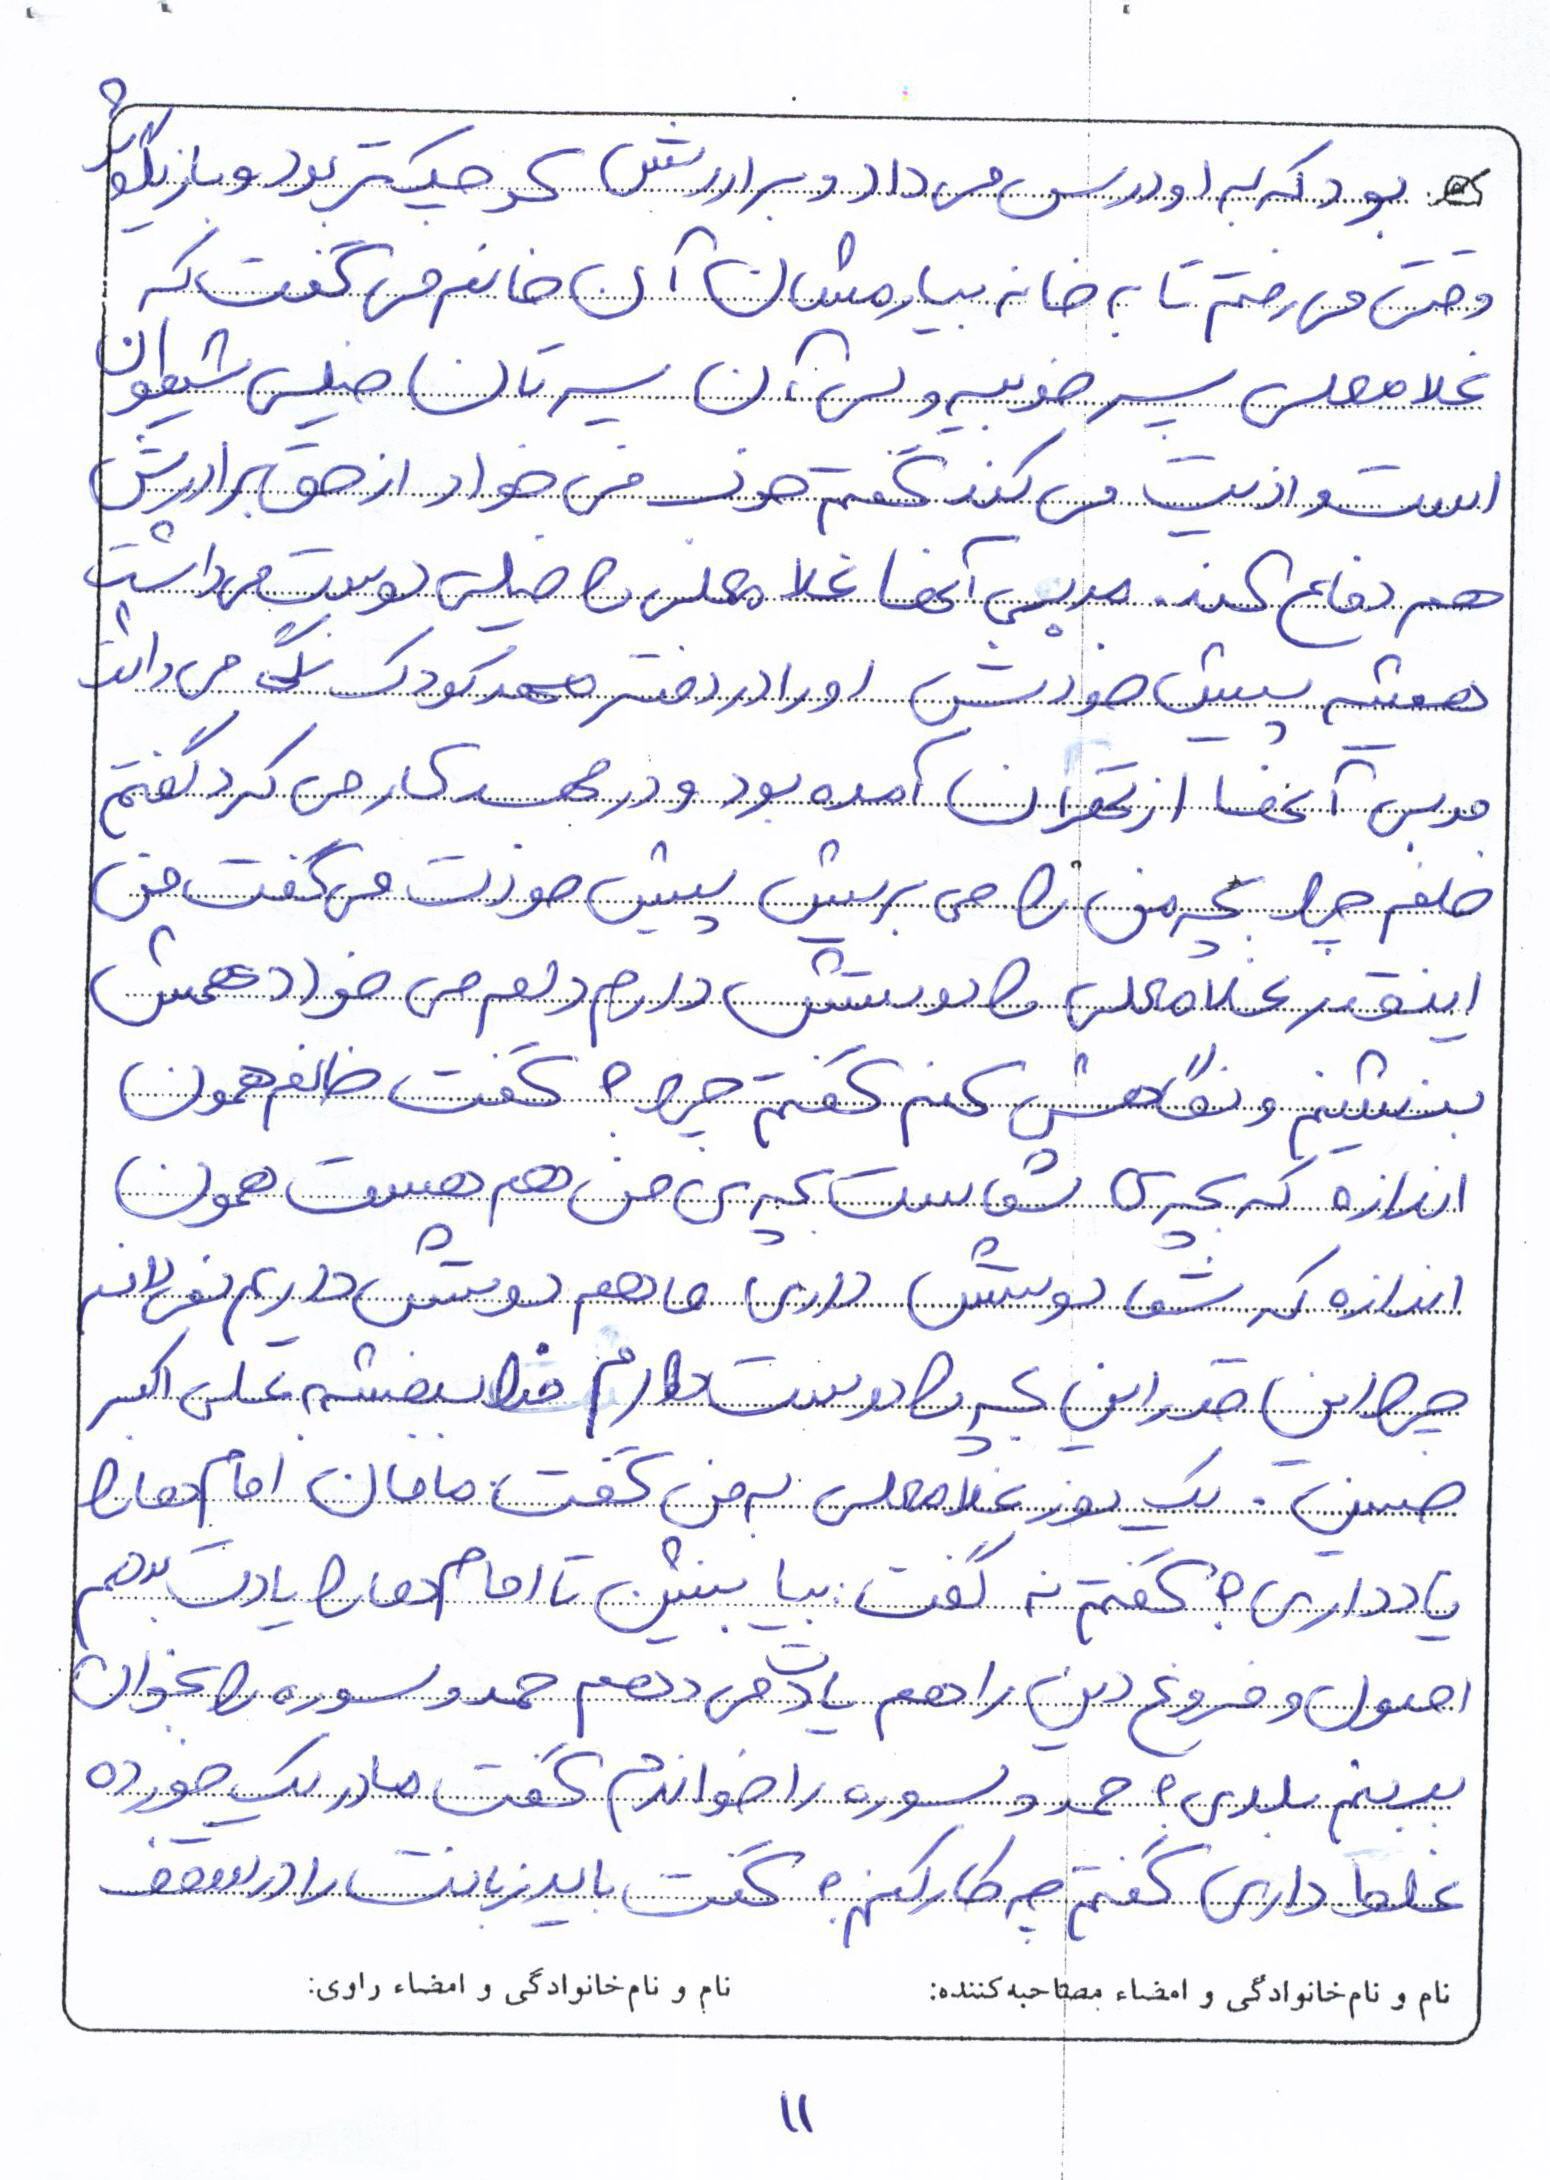 بود که به او درس می داد و برادرش کوچیکتر بود و بازیگوش
وقتی می رفتم تا به خانه بیارمشان آن خانم می گفت که
غلامعلی پسر خوبیه ولی آن پسرتان خیلی شیطون
است و اذیت می کند گفتم خوب می خواد از حق برادرش
هم دفاع کند. مربی آنها غلامعلی را خیلی دوست می داشت
همیشه پیش خودش او را در دفتر مهد کودک نگه می داشت
مربی آنها از تهران آمده بود و در مهد کار می کرد گفتم
خانم چرا بچه من را می بریش پیش خودت می گفت من
اینقدر غلامعلی را دوستش دارم دلم می خواد همش
بنشینم و نگاهش کنم گفتم چرا؟ گفت خانم همون
اندازه که بچه ی شماست بچه ی من هم هست همون
اندازه که شما دوستش داری ما هم دوستش داریم نمی دانم
چرا این قدر این بچه را دوست دارم خدا ببخشه علی اکبر
حسینی. یک روز غلامعلی به من گفت: مامان امام ها را
یاد داری؟ گفتم نه گفت: بیا بنشین تا امام ها را یادت بدهم
اصول و فروع دین را هم یادت می دهم حمد و سوره را بخوان
ببینم بلدی؟ حمد و سوره را خواندم گفت مادر یک خورده
غلط داری گفتم چه کار کنم؟ گفت باید زبانت را در سقف
نام و نام خانوادگی و امضاء مصاحبه کننده: نام و نام خانوادگی و امضاء راوی:
۱۱